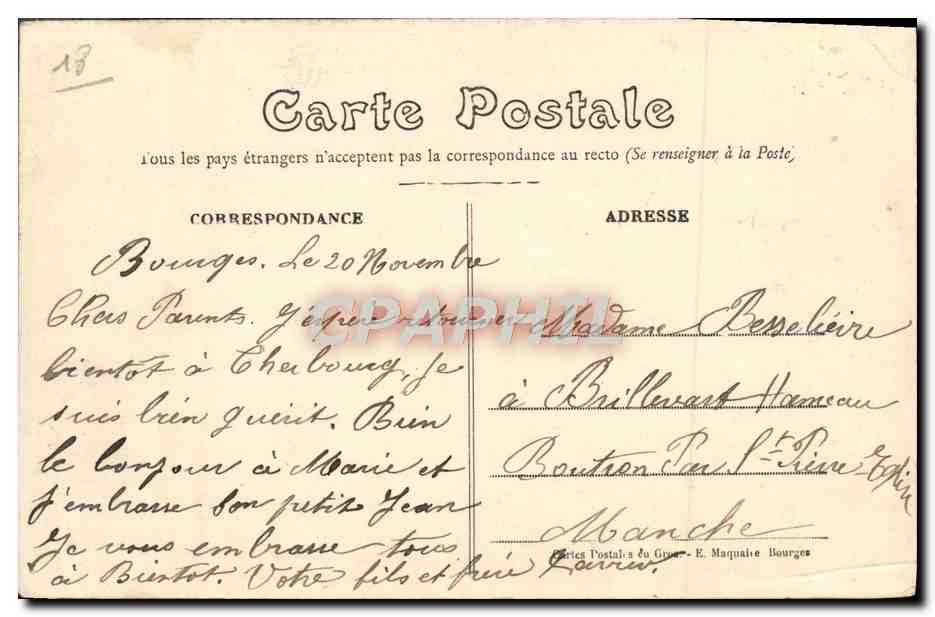 13
Carte Postale
Tous les pays étrangers n'acceptent pas la correspondance au recto (Se renseigner à la Poste)
CORRESPONDANCE
Bourges. Le 20 Novembre
Chers Parents. J'éspere retourner
bientot à Cherbourg, je
suis bien guérit. Bien
le bonjour à Marie et
j'embrasse son petit Jean
Je vous embrasse tous
à Bientot. Votre fils et frère
ADRESSE
Madame Besselièire
à Brillevast Hameau
Boutron Par St. Pierre Eglise
Manche
Cartes Postales du Gros.- E. Maquaire Bourges
CPAPHIL